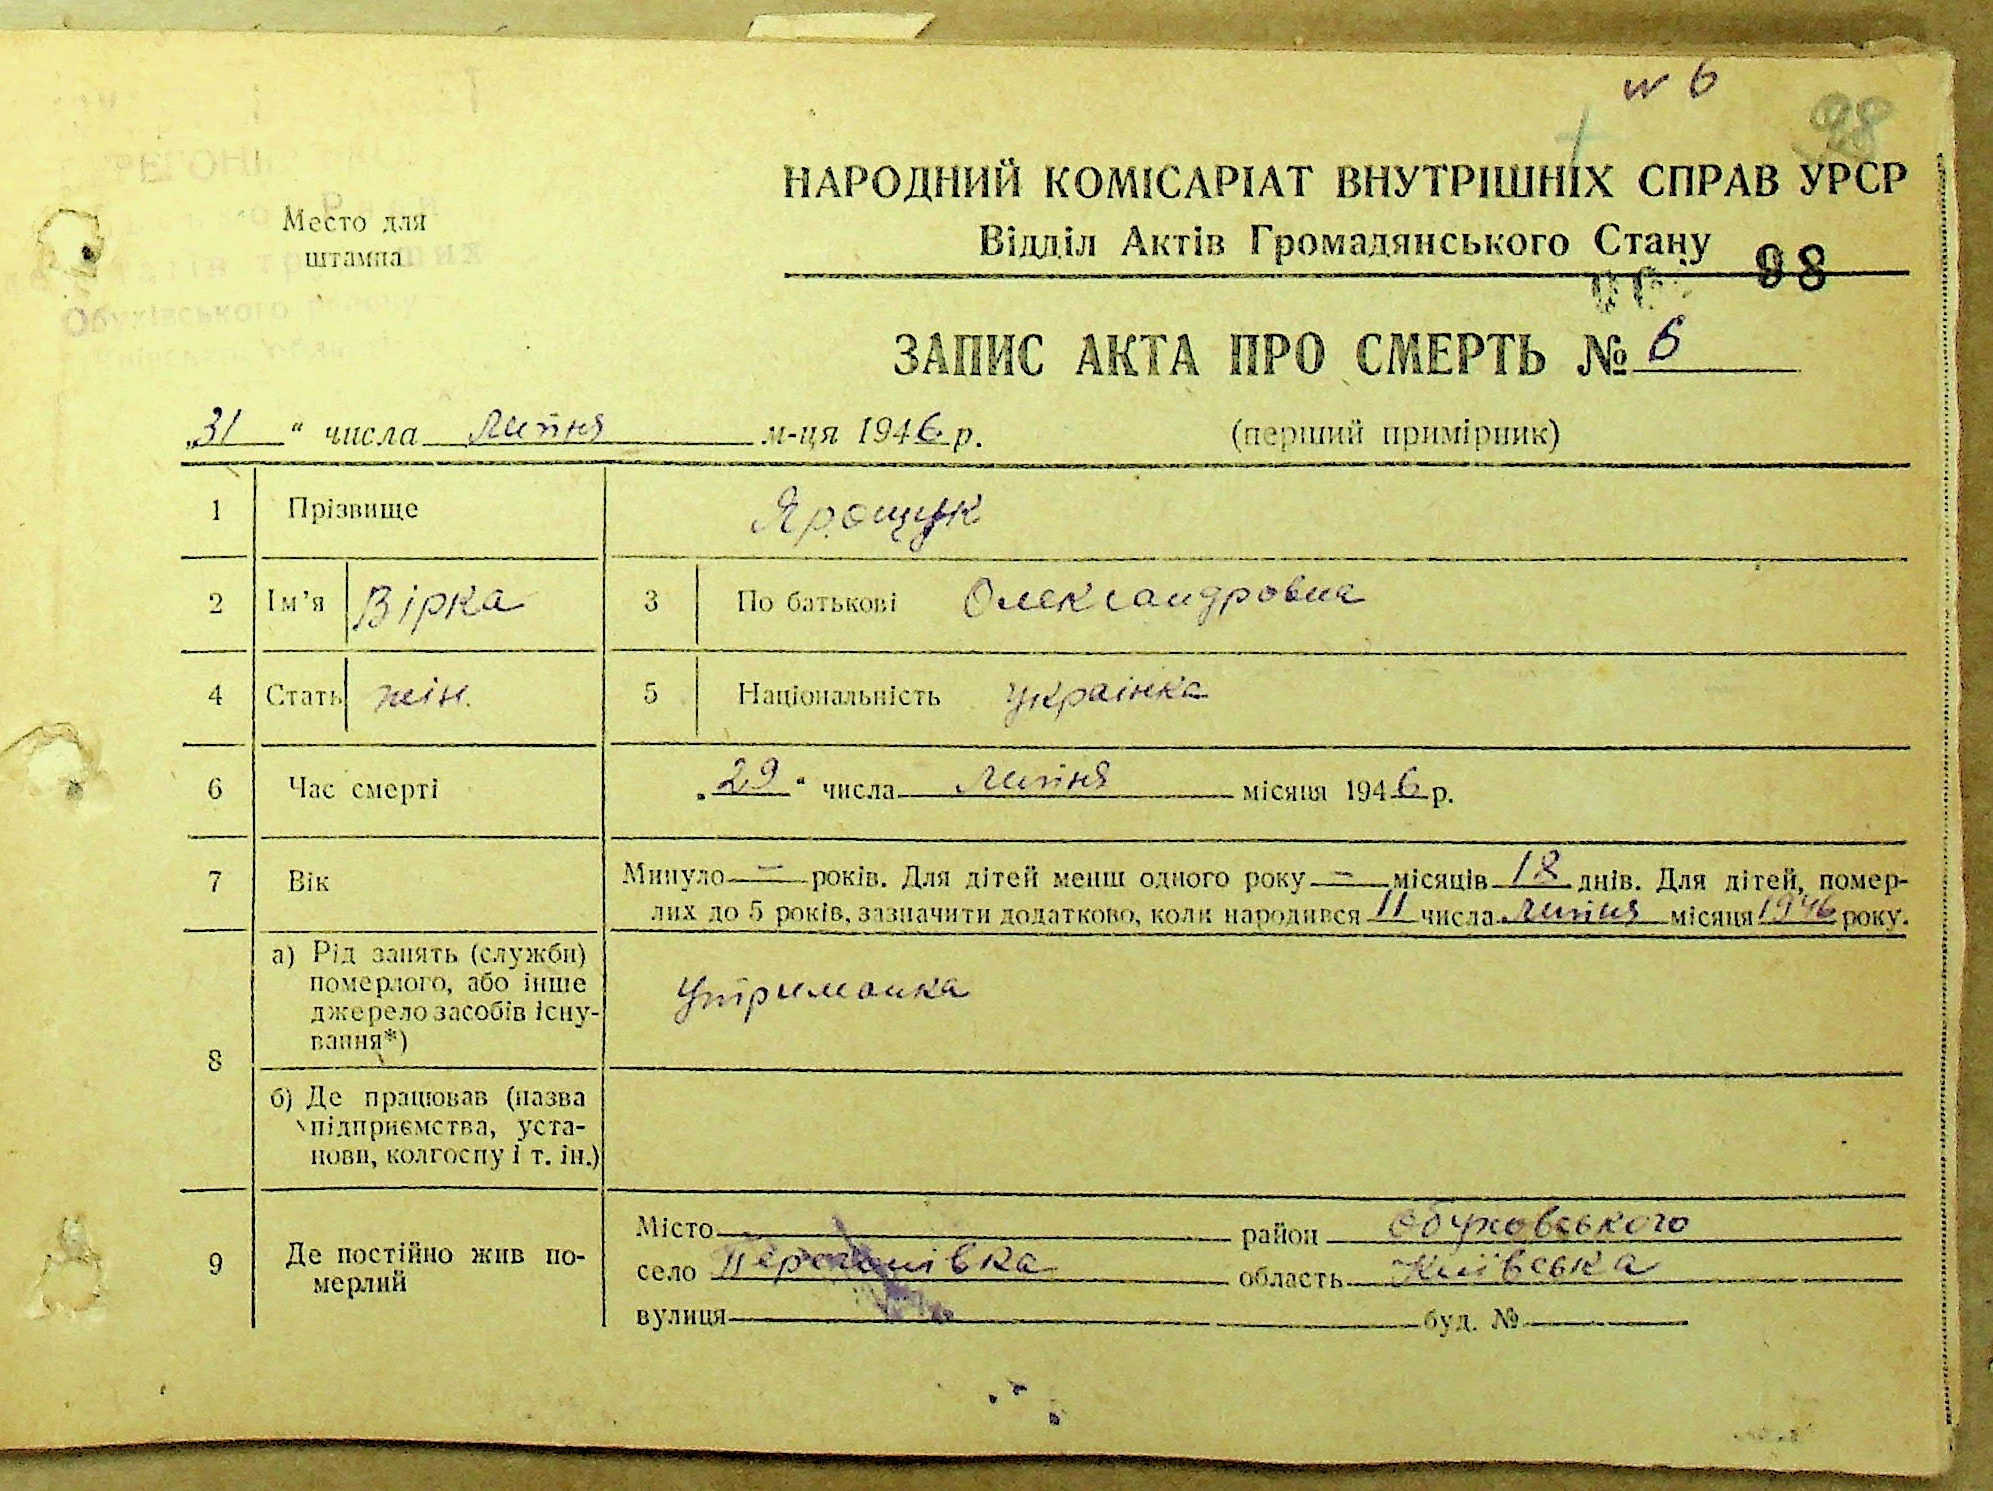 № 6
98
Место для
штампа
НАРОДНИЙ КОМІСАРІАТ ВНУТРІШНІХ СПРАВ УРСР
Відділ Актів Громадянського Стану
98
ЗАПИС АКТА ПРО СМЕРТЬ № 6
„31“ числа липня м-ця 1946 р. (перший примірник)
1 Прізвище Ярощук
2 Ім’я Вірка 3 По батькові Олександровна
4 Стать жін. 5 Національність українка
6 Час смерті „29“ числа липня місяця 1946 р.
7 Вік Минуло — років. Для дітей менш одного року — місяців 18 днів. Для дітей, помер-
лих до 5 років, зазначити додатково, коли народився 11 числа липня місяця 1946 року.
8 а) Рід занять (служби)
померлого, або інше
джерело засобів існу-
вання*)
утриманка
б) Де працював (назва
підприємства, уста-
нови, колгоспу і т. ін.)
9 Де постійно жив по-
мерлий
Місто район Обуховського
село область Київська
вулиця буд. №